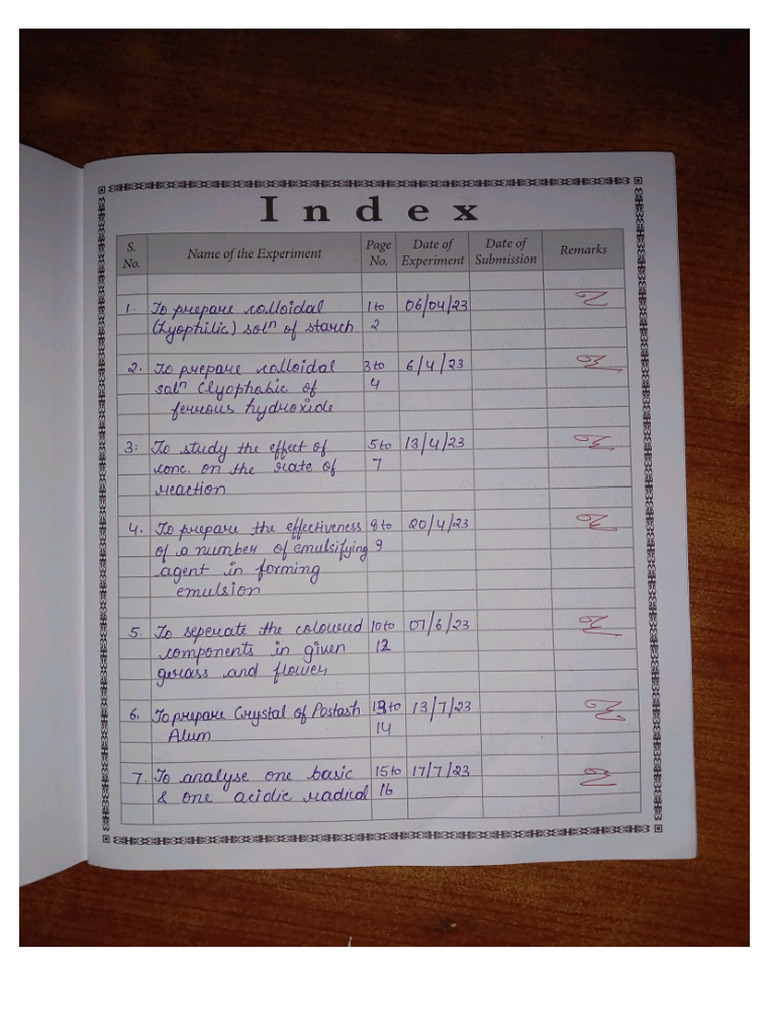 Index
S. No. Name of the Experiment Page No. Date of Experiment Date of Submission Remarks
1. To prepare colloidal 1 to 06/04/23
(Lyophilic) solⁿ of starch 2
2. To prepare colloidal 3 to 6/4/23
solⁿ (lyophobic of 4
ferrous hydroxide
3: To study the effect of 5 to 13/4/23
conc. on the rate of 7
reaction
4. To prepare the effectiveness 8 to 20/4/23
of a number of emulsifying 9
agent in forming
emulsion
5. To seperate the coloured 10 to 07/6/23
components in given 12
grass and flower
6. To prepare Crystal of Postash 13 to 13/7/23
Alum 14
7. To analyse one basic 15 to 17/7/23
& one acidic radical 16